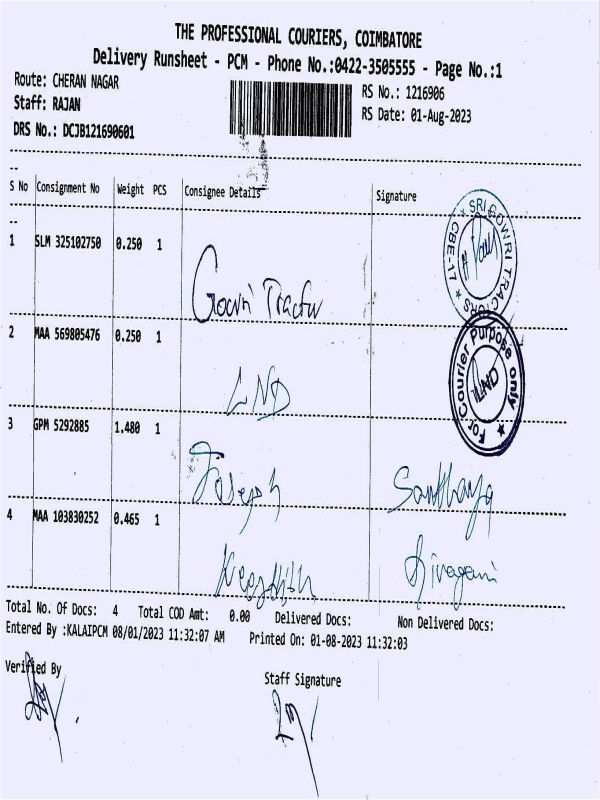 THE PROFESSIONAL COURIERS, COIMBATORE
Delivery Runsheet - PCM - Phone No.:0422-3505555 - Page No.:1
Route: CHERAN NAGAR
RS No.: 1216906
Staff: RAJAN
RS Date: 01-Aug-2023
DRS No.: DCJB121690601
S No Consignment No Weight PCS Consignee Details Signature
1 SLM 325102750 0.250 1
SRI GOWRI TRACTORS
CBE-17
2 MAA 569805476 0.250 1
LND
For Courier Purpose only
3 GPM 5292885 1.480 1
Joseph
4 MAA 103830252 0.465 1
Total No. Of Docs: 4 Total COD Amt: 0.00 Delivered Docs: Non Delivered Docs:
Entered By :KALAIPCM 08/01/2023 11:32:07 AM Printed On: 01-08-2023 11:32:03
Verified By
Staff Signature